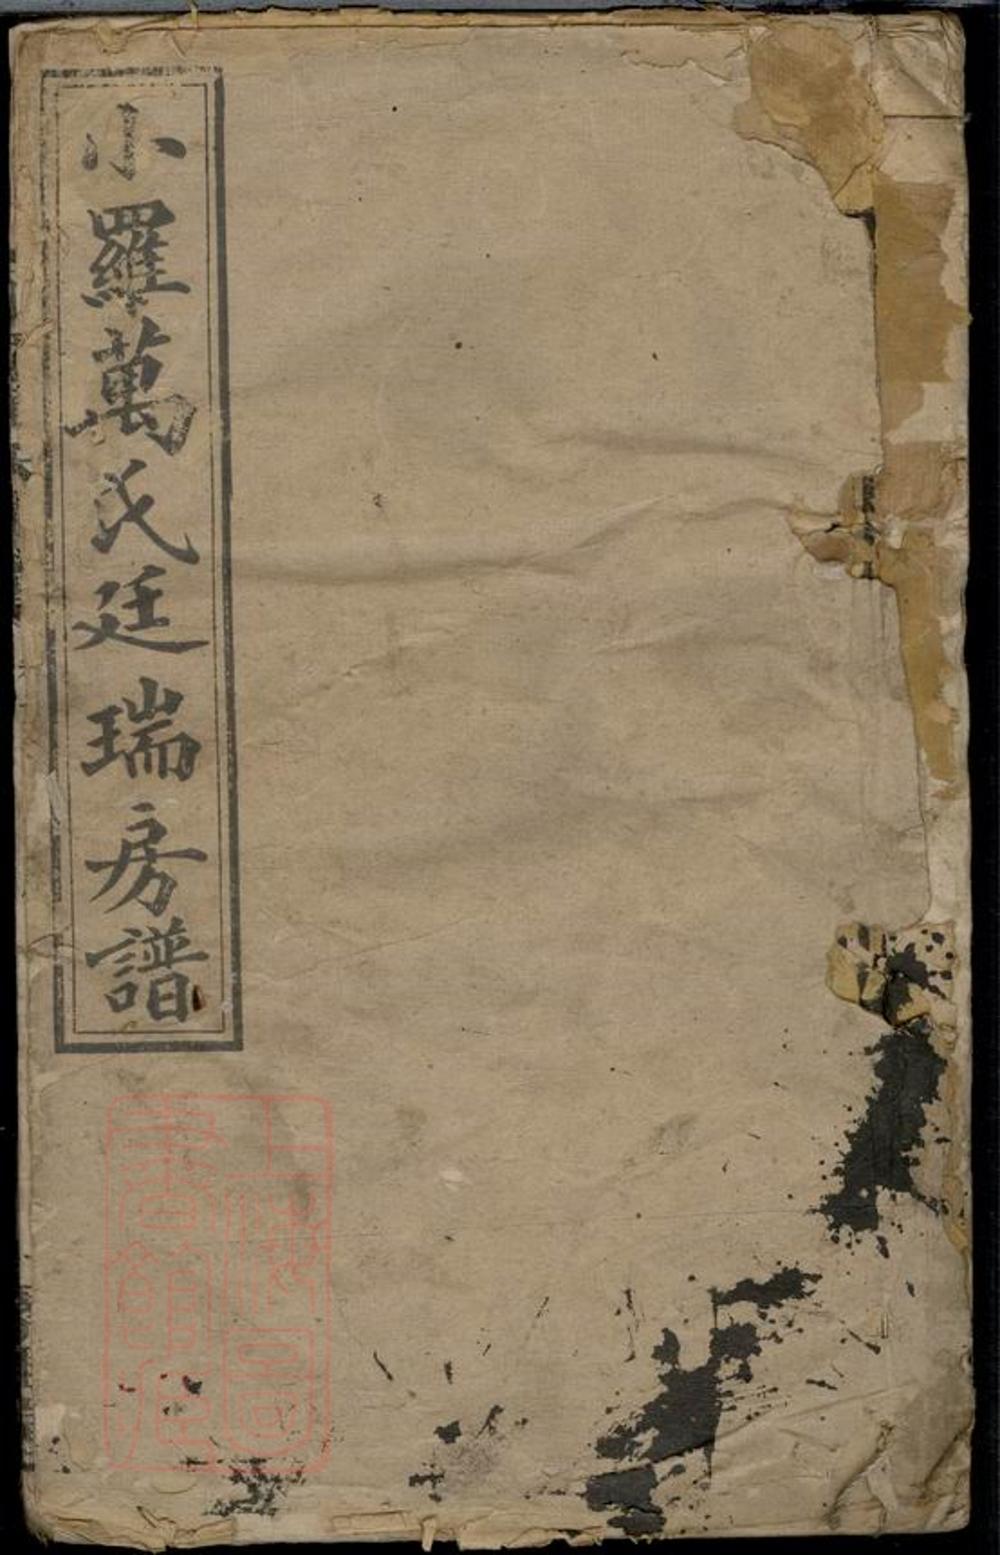 小羅萬氏廷瑞房譜
上海圖書館藏